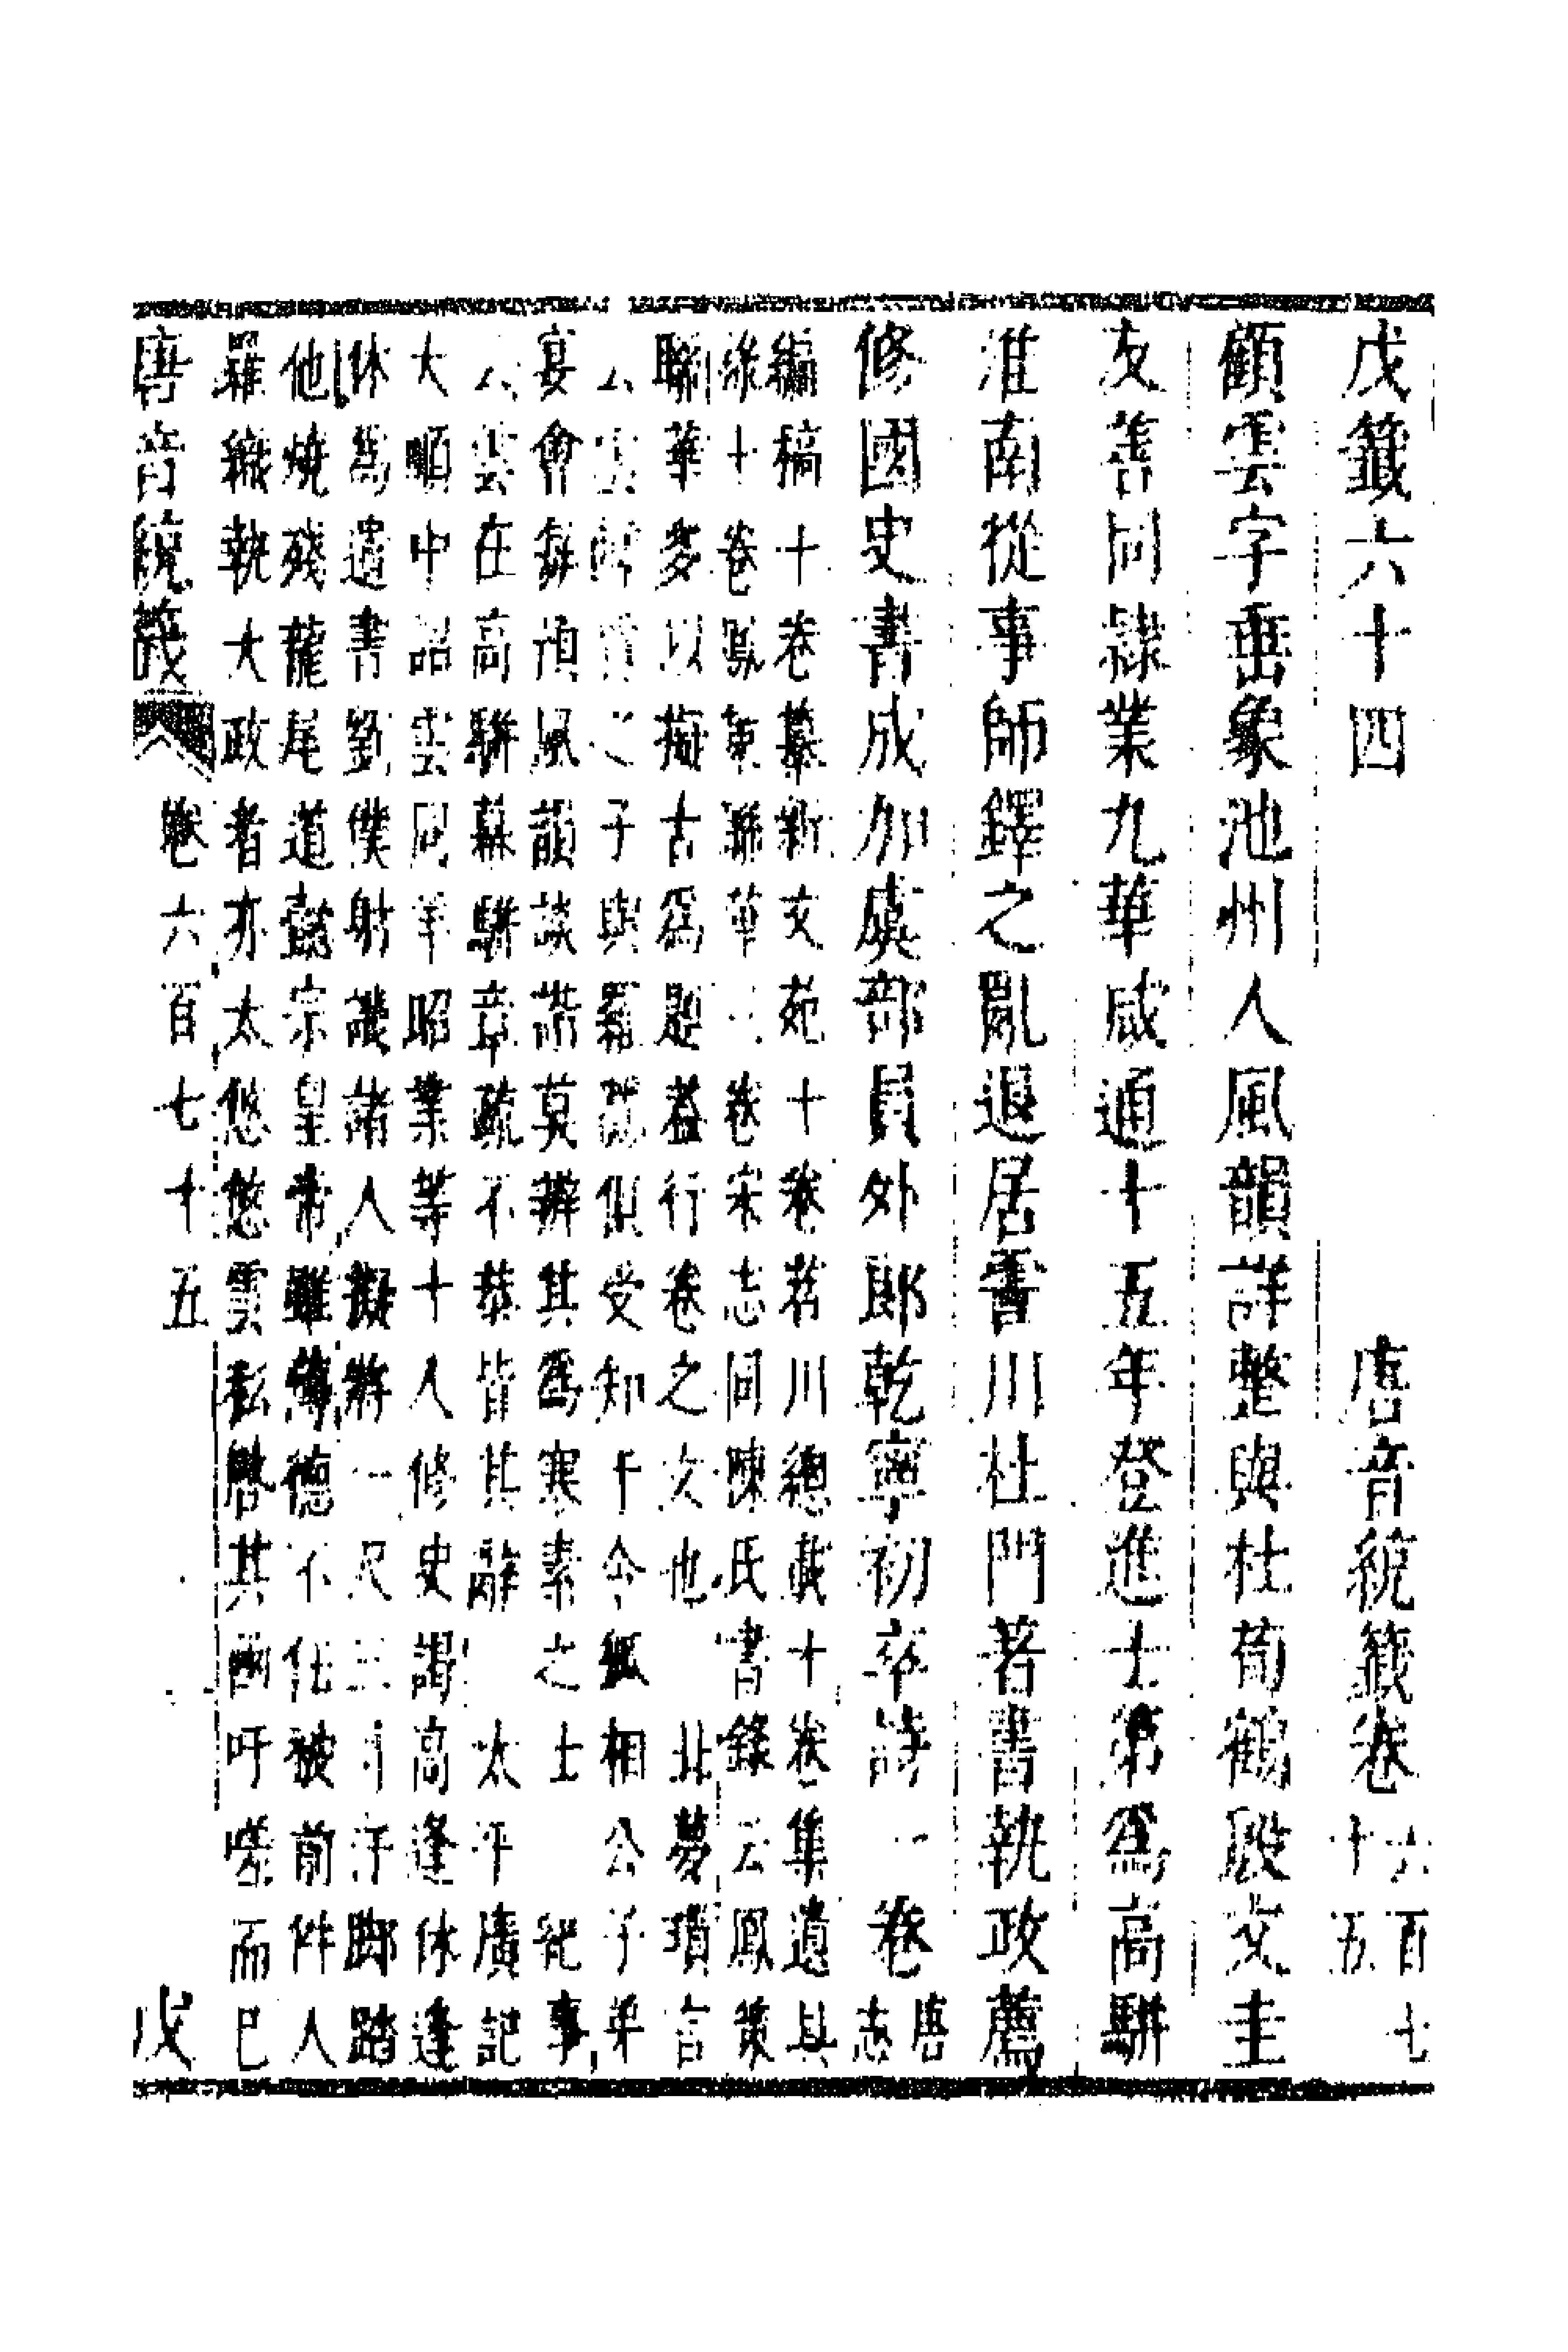 戊籖六十四　唐音統籖卷六百七十五
顧雲字垂象池州人風韻詳整與杜荀鶴殷文圭
友善同隸業九華咸通十五年登進士第爲高駢
淮南從事師鐸之亂退居霅川杜門著書執政薦
修國史書成加虞部員外郎乾寧初卒詩一卷唐志
編稿十卷纂新文苑十卷苕川總載十卷集遺具
綠十卷鳳策聯華三卷宋志同陳氏書錄云鳳策
聯華多以擬古爲題葢行卷之文也　北夢瑣言
云雲鹺賈之子與羅隱俱受知于令狐相公子弟
宴會每預風韻談諧莫辨其爲寒素之士　紀事
云雲在高駢幕駢章疏不恭皆其辭　太平廣記
大順中詔雲同羊昭業等十人修史謁高逢休逢
休爲遣書劉僕射譏諸人擬將一尺三寸汗脚踏
他燒殘龍尾道懿宗皇帝雖薄德不任被前件人
羅織執大政者亦太悠悠雲私啓其函吁嗟而已
唐音統籖　卷六百七十五　戊